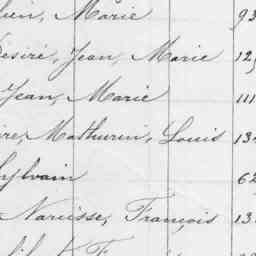 Marie 93
Désiré, Jean, Marie 12
Jean, Marie 111
Mathurin, Louis 13
Sylvain 62
Narcisse, François 13